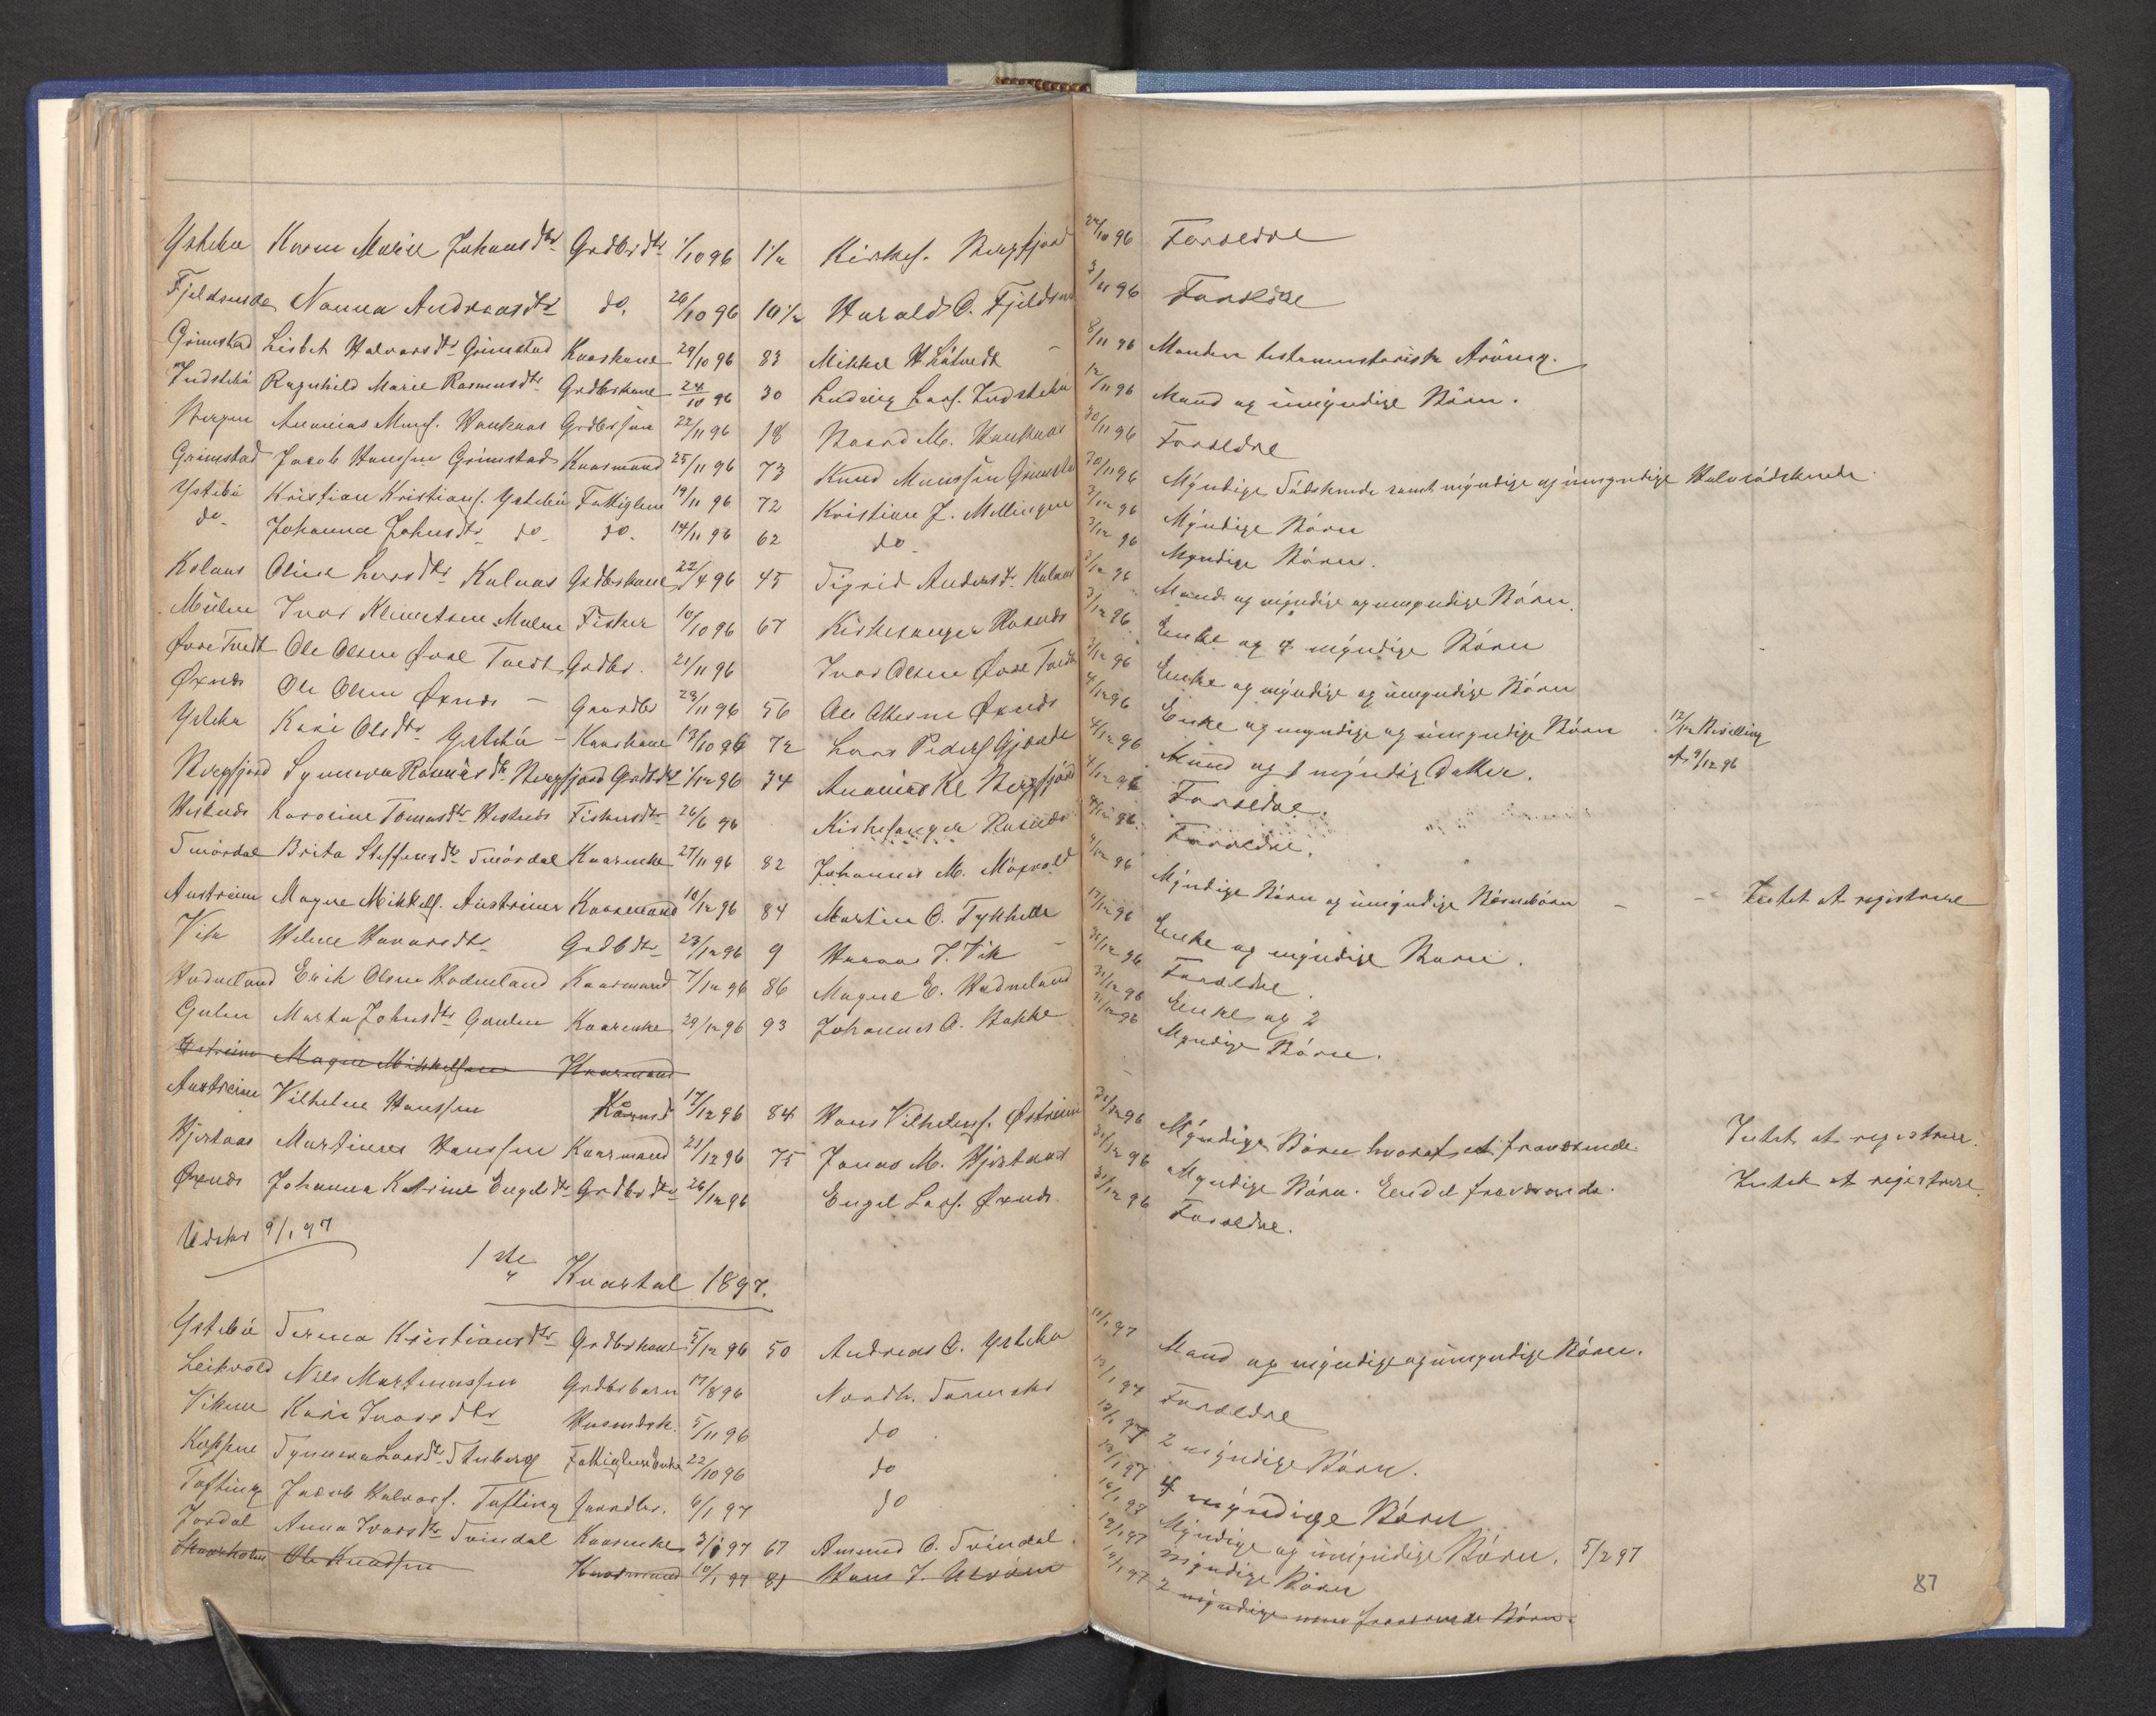 Ystebø Karen Marie Johansdtr Grdbrdtr 1/10 96 1½ Kirkes. Bergfjord 24/10 96 Forældre
Fjeldsende Nanna Andreasdtr do. 26/10 96 10½ Harald O. Fjeldsende 3/11 96 Forældre
Grimstad Lisbet Halvorsdtr Grimstad Kaarkone 29/10 96 83 Mikkel H. 8/11 96 Manden testamentarisk Arving.
Indstebø Ragnhild Marie Rasmusdtr Grdbrskone 24/10 96 30 Ludvig Lars. Indstebø 12/11 96 Mand og umyndige Børn.
Bergen Ananias Mons. Haukaas Grdbrsøn 22/11 96 18 Baard M. Haukaas 30/11 96 Forældre
Grimstad Jacob Hanssen Grimstad Kaarmand 25/11 96 73 Knud Monssen Grimstad 30/11 96 Myndige Sødskende samt myndige og umyndige Halvsødskende.
Ystebø Kristian Kristians. Ystebø Fattiglem 19/11 96 72 Kristian J. Mellingen 3/12 96 Myndige Børn
do. Johanna Johnsdtr do. do. 14/11 96 62 do. 3/12 96 Myndige Børn.
Kolaas Oline Larsdtr Kolaas Grdbrskone 22/4 96 45 Sigrid Andersdtr Kolaas 3/12 96 Mand og myndige og umyndige Børn.
Mulen Ivar Klemetsen Mulen Fisker 10/10 96 67 Kirkesanger Rosnes 3/12 96 Enke og myndige Børn
Øvre Tvedt Ole Olsen Øvre Tvedt Grdbr. 21/11 96 Ivar Olsen Øvre Tvedt 3/12 96 Enke og myndige og umyndige Børn
Øxnes Ole Olsen Øxnes - Gaardbr 23/11 96 56 Ole Olsen Øxnes 4/12 96 Enke og myndige og umyndige Børn 12/12 Bevilling
Ystebø Kari Olsdtr Ystebø - Kaarkone 13/10 96 72 Lars Peders Gjerde 4/12 96 Mand og 1 myndig Datter. af 9/12 96
Bergfjord Synneva Rasmusdtr Bergfjord Grdbdtr 1/12 96 34 Ananias Kl Bergfjord 4/12 96 Forældre.
Vestnes Karoline Tomasdtr Vestnes Fiskersdtr 26/6 96 Kirkesanger Rosnes 4/12 96 Forældre.
Smørdal Brita Steffensdtr Smørdal Kaarenke 27/11 96 82 Johannes M. 4/12 96 Myndige Børn og umyndige Børnebørn - - Intet at registrere
Austreim Magne Mikkels. Austreim Kaarmand 10/12 96 84 Martin O. Tykhelle 17/12 96 Enke og myndige Børn.
Vik Heline Havarsdtr Grdbdtr 23/12 96 9 Havar J. Vik - 31/12 96 Forældre.
Hodneland Erik Olsen Hodneland Kaarmand 7/12 96 86 Magne E. Hodneland 31/12 96 Enke og 2
Gulen Marta Johnsdtr Gaulen Kaarenke 29/12 96 93 Johannes A. Bakke 31/12 96 Myndige Børn.
Østreim Magne Mikkelsen Kaarmand
Austreim Vilhelm Hanssen Kårmd 17/12 96 84 Hans Vilhelms. Østreim 31/12 96 Myndige Børn hvoraf et fraværende. Intet at registrere.
Hjertaas Martines Hanssen Kaarmand 21/12 96 75 Jonas M. Hjertaas 31/12 96 Myndige Børn. Endel fraværende. Intet at registrere.
Øxnes Johanna Katrine Engelsdtr Grdbrdtr 26/12 96 Engel Lars. Øxnes. 31/12 96 Forældre.
Udskr 9/1 97
1ste Kvartal 1897.
Ystebø Serina Kristiansdtr Grdbrskone 5/12 96 50 Andreas O. Ystebø 11/1 97 Mand og myndige og umyndige Børn.
Leikvold Nils Martinussen Grdbrbarn 17/8 96 Nordh. Sorenskr 13/1 97 Forældre
Viken Kari Ivarsdtr Husmdsk. 5/11 96 do 13/1 97 2 myndige Børn.
Synneva Larsdtr Stuberg Fattiglem Enke 22/10 96 do 13/1 97 4 myndige Børn
Tofting Jacob Halvors. Tofting Gaardbr. 6/1 97 do 14/1 97 Myndige og umyndige Børn. 5/2 97
Jordal Anna Ivarsdtr Svindal Kaarenke 3/1 97 67 Amund O. Svindal 19/1 97 myndige Børn
Skaarholm Ole Knudsen Kaarmand 10/1 97 81 Hans J. 19/1 97 2 myndige men fraværende Børn.
87